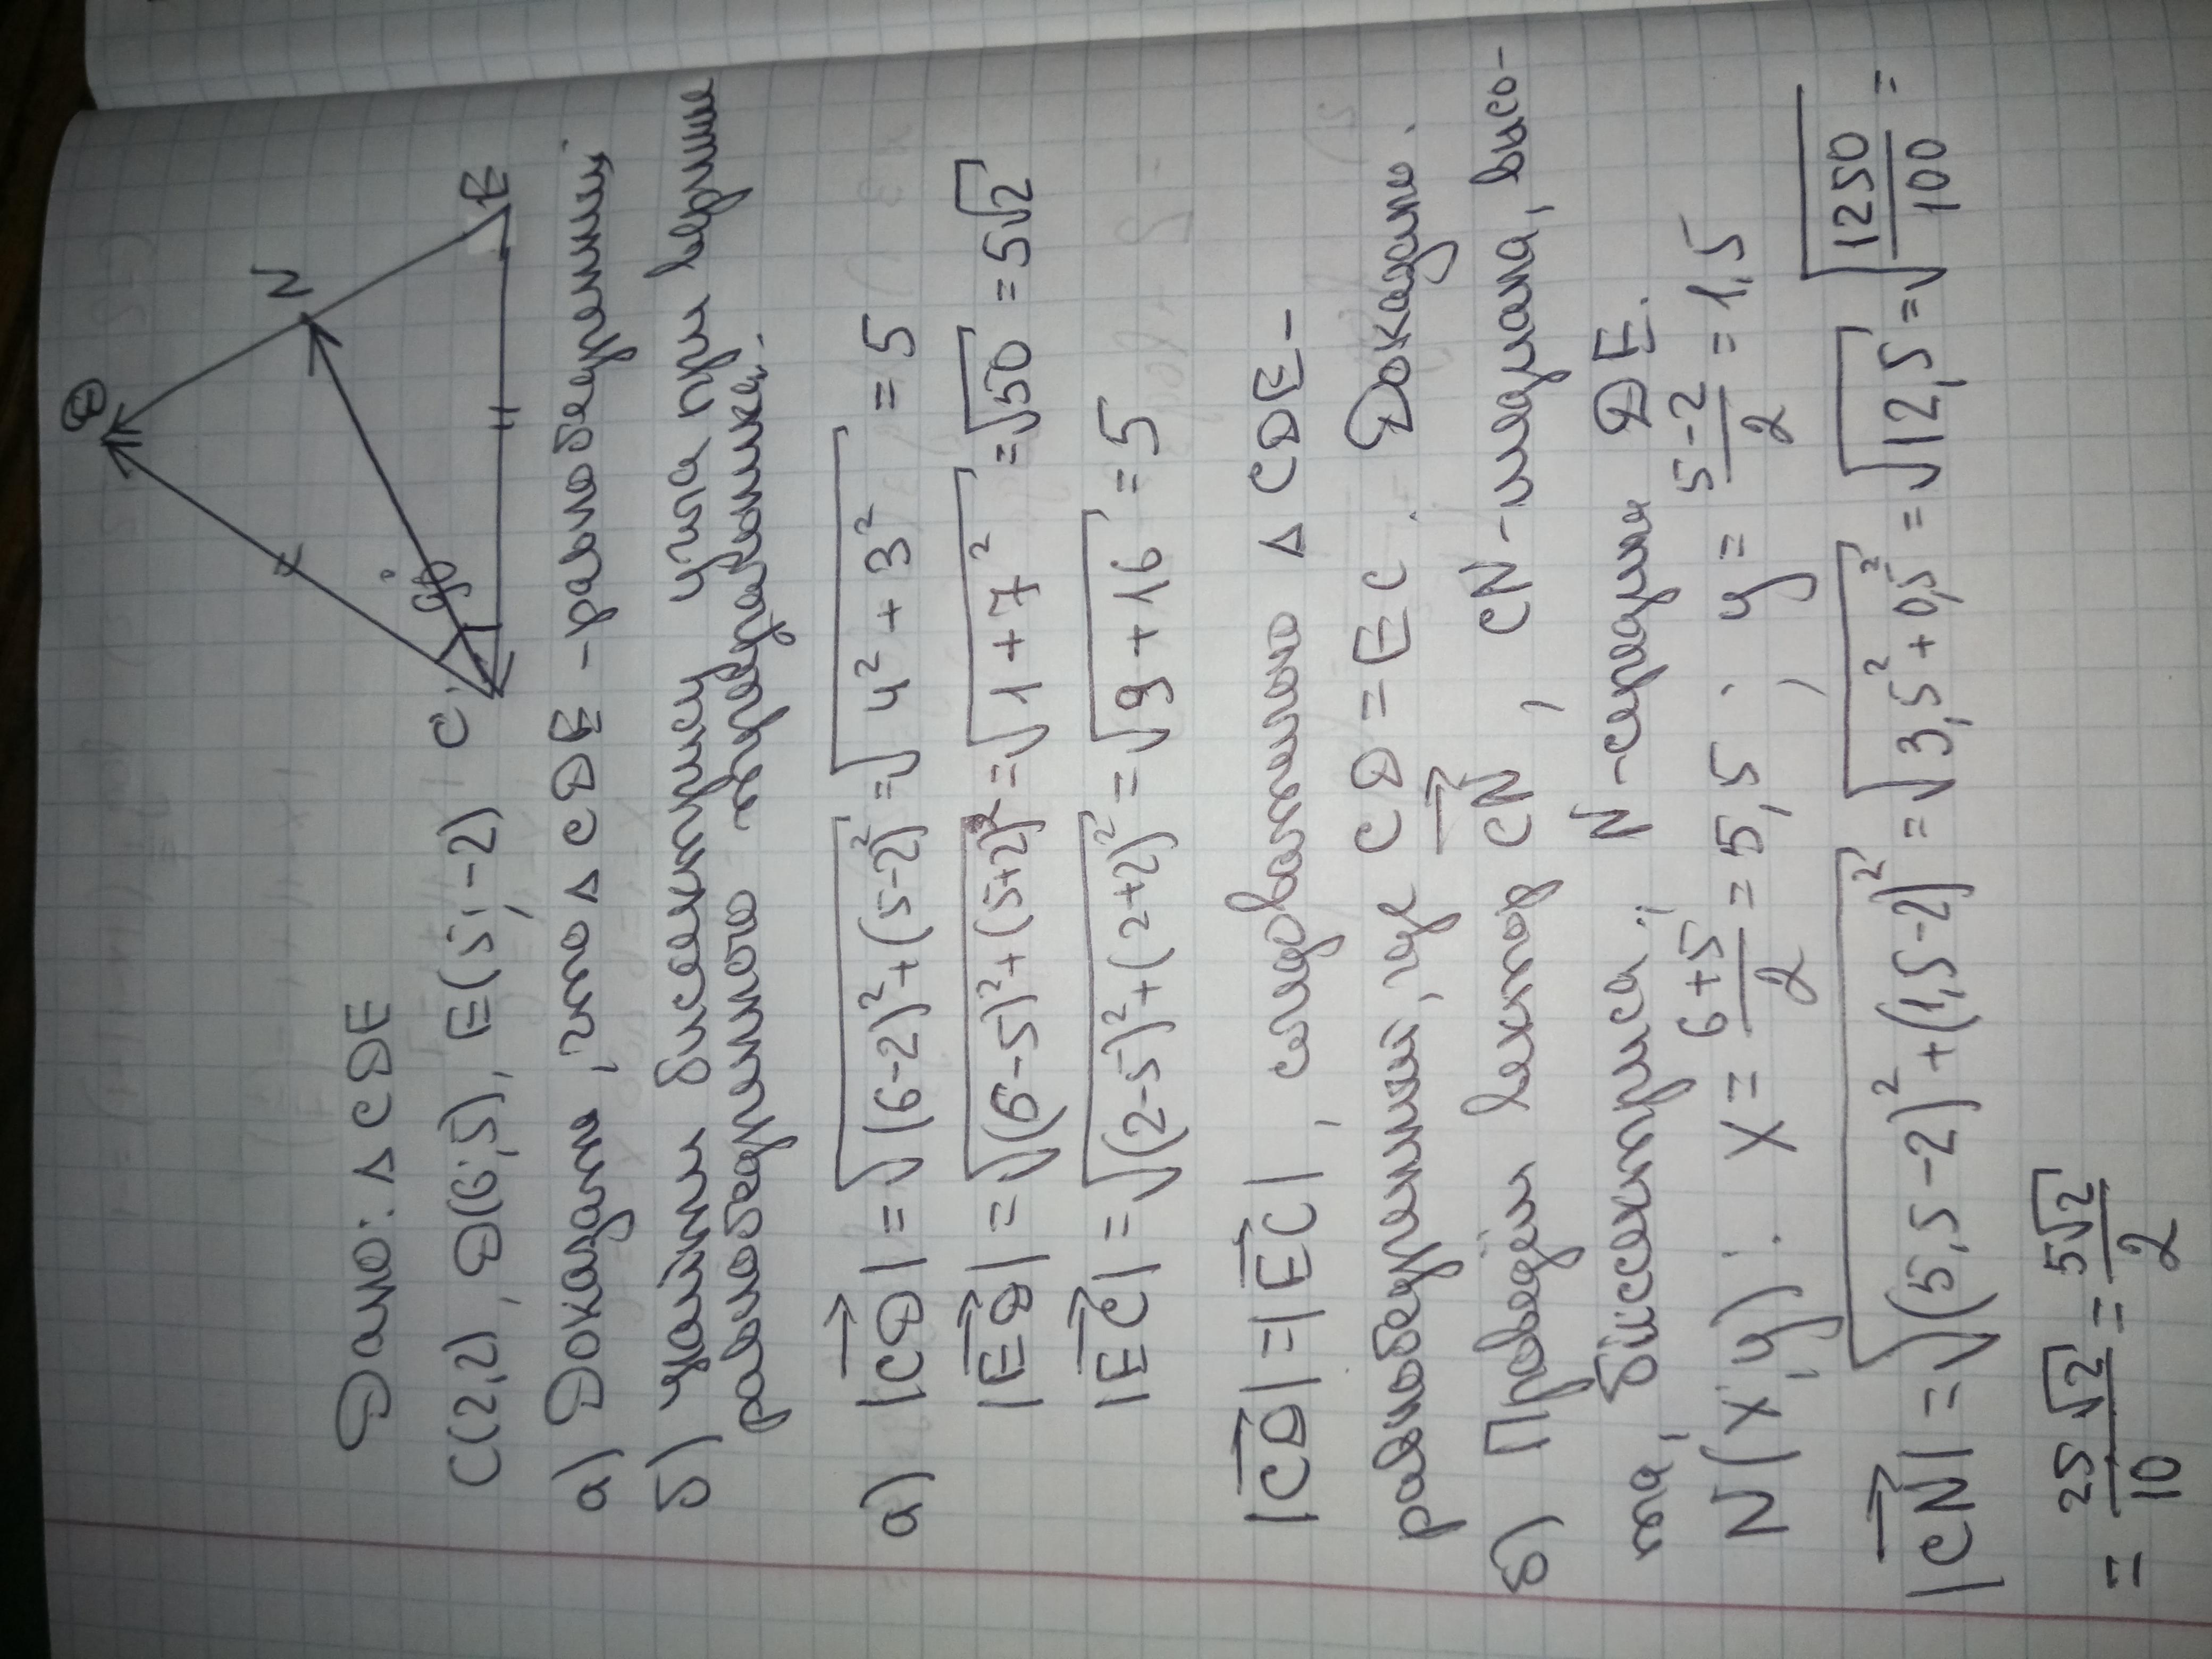 D
N
90°
C
E
Дано: Δ CDE
C(2;2), D(6;5), E(5;-2)
а) Доказать, что Δ CDE - равнобедренный;
б) Найти биссектрису угла при вершине
равнобедренного треугольника.
а) |CD| = √(6-2)²+(5-2)² = √4²+3² = 5
|ED| = √(6-5)²+(5+2)² = √1+7² = √50 = 5√2
|EC| = √(2-5)²+(2+2)² = √9+16 = 5
|CD| = |EC|, следовательно Δ CDE -
равнобедренный, где CD = EC. Доказано.
б) Проведём вектор CN, CN - медиана, высо-
та, биссектриса. N - середина DE.
N(x;y): x = 6+5/2 = 5,5; y = 5-2/2 = 1,5
|CN| = √(5,5-2)²+(1,5-2)² = √3,5²+0,5² = √12,5 = √1250/100 =
= 25√2/10 = 5√2/2